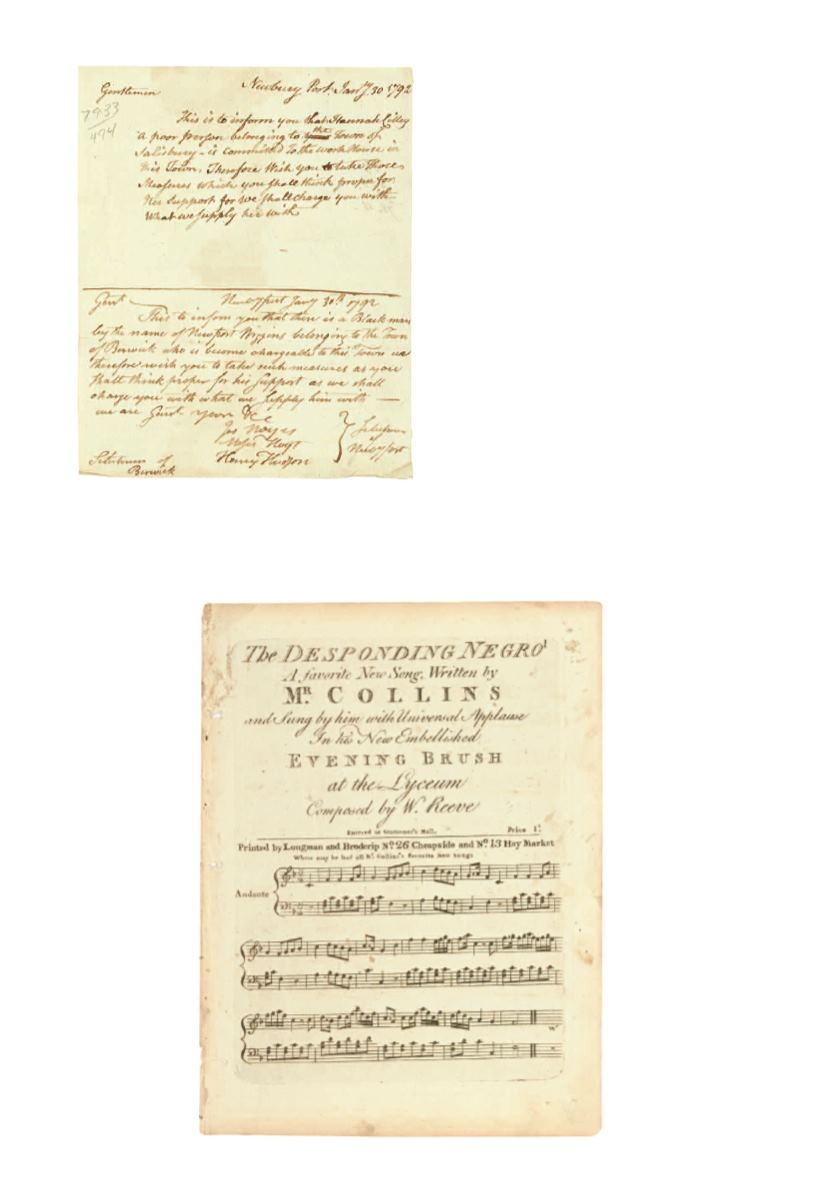 Newbury Port Jany 30 1792
Gentlemen
7933
494
This is to inform you that Hannah Lilley
a poor person belonging to the Town of
Salisbury - is committed to the work House in
this Town, Therefore Wish you to take Those
Measures which you shall think proper for
Her Support for we shall charge you with
What we supply her with
Gent Newbyport Jany 30th 1792
This to inform you that there is a Black man
by the name of Newport Wiggins belonging to the Town
of Berwick who is become chargeable to this Town we
therefore wish you to take such measures as you
shall think proper for his support as we shall
charge you with what we supply him with
we are Gent yours &c
Jos Noyes
Moses Hoyt
Henry Hudson
Selectmen
of
Newbyport
Selectmen of
Berwick
The DESPONDING NEGRO
A favorite New Song, Written by
MR. COLLINS
and Sung by him with Universal Applause
In his New Embellished
EVENING BRUSH
at the Lyceum
Composed by W. Reeve
Entered at Stationer's Hall. Price 1s.
Printed by Longman and Broderip No. 26 Cheapside and No. 13 Hay Market
Where may be had all Mr. Collins's Favorite New Songs
Andante